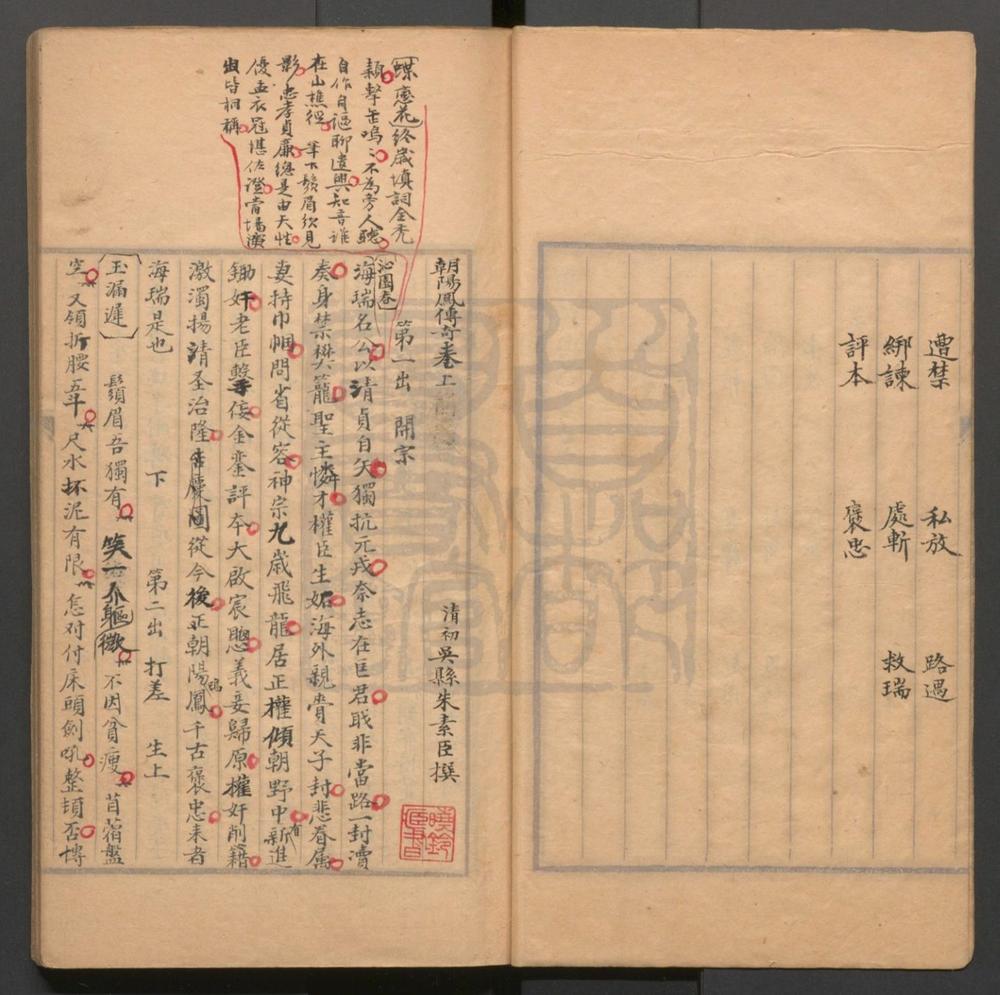 遭禁 私放 路遇
綁諫 處斬 救瑞
評本 褒忠
蝶戀花終歲填詞全禿
穎擊缶嗚〻不為旁人聽
自作自謳聊遣興知音誰
在山樵徑 筆下鬚眉紛見
影忠孝貞廉總是由天性
優孟衣冠堪佐證當場演
出皆相稱
朝陽鳳傳奇卷上 清初吳縣朱素臣撰
第一出 開宗
沁園春
海瑞名公以清貞自矢獨抗元戎奈志在匡君職非當路一封瀆
奏身禁樊籠聖主憐才權臣生妬海外親賫天子封悲眷属
妻持巾幗問省從容神宗九歲飛龍居正權傾朝野中有新進
鋤奸老臣擊佞金鑾評本大啟宸聰義妾歸原權奸削籍
激濁揚清圣治隆 慶圖從今後正朝陽鳳鳴千古褒忠耒者
海瑞是也 下 第二出 打差 生上
玉漏遲 鬚眉吾獨有笑一介軀微不因貧瘦苜蓿盤
空又領折腰五斗尺水抔泥有限怎对付床頭劍吼整頓否愽
曉鈴臧書